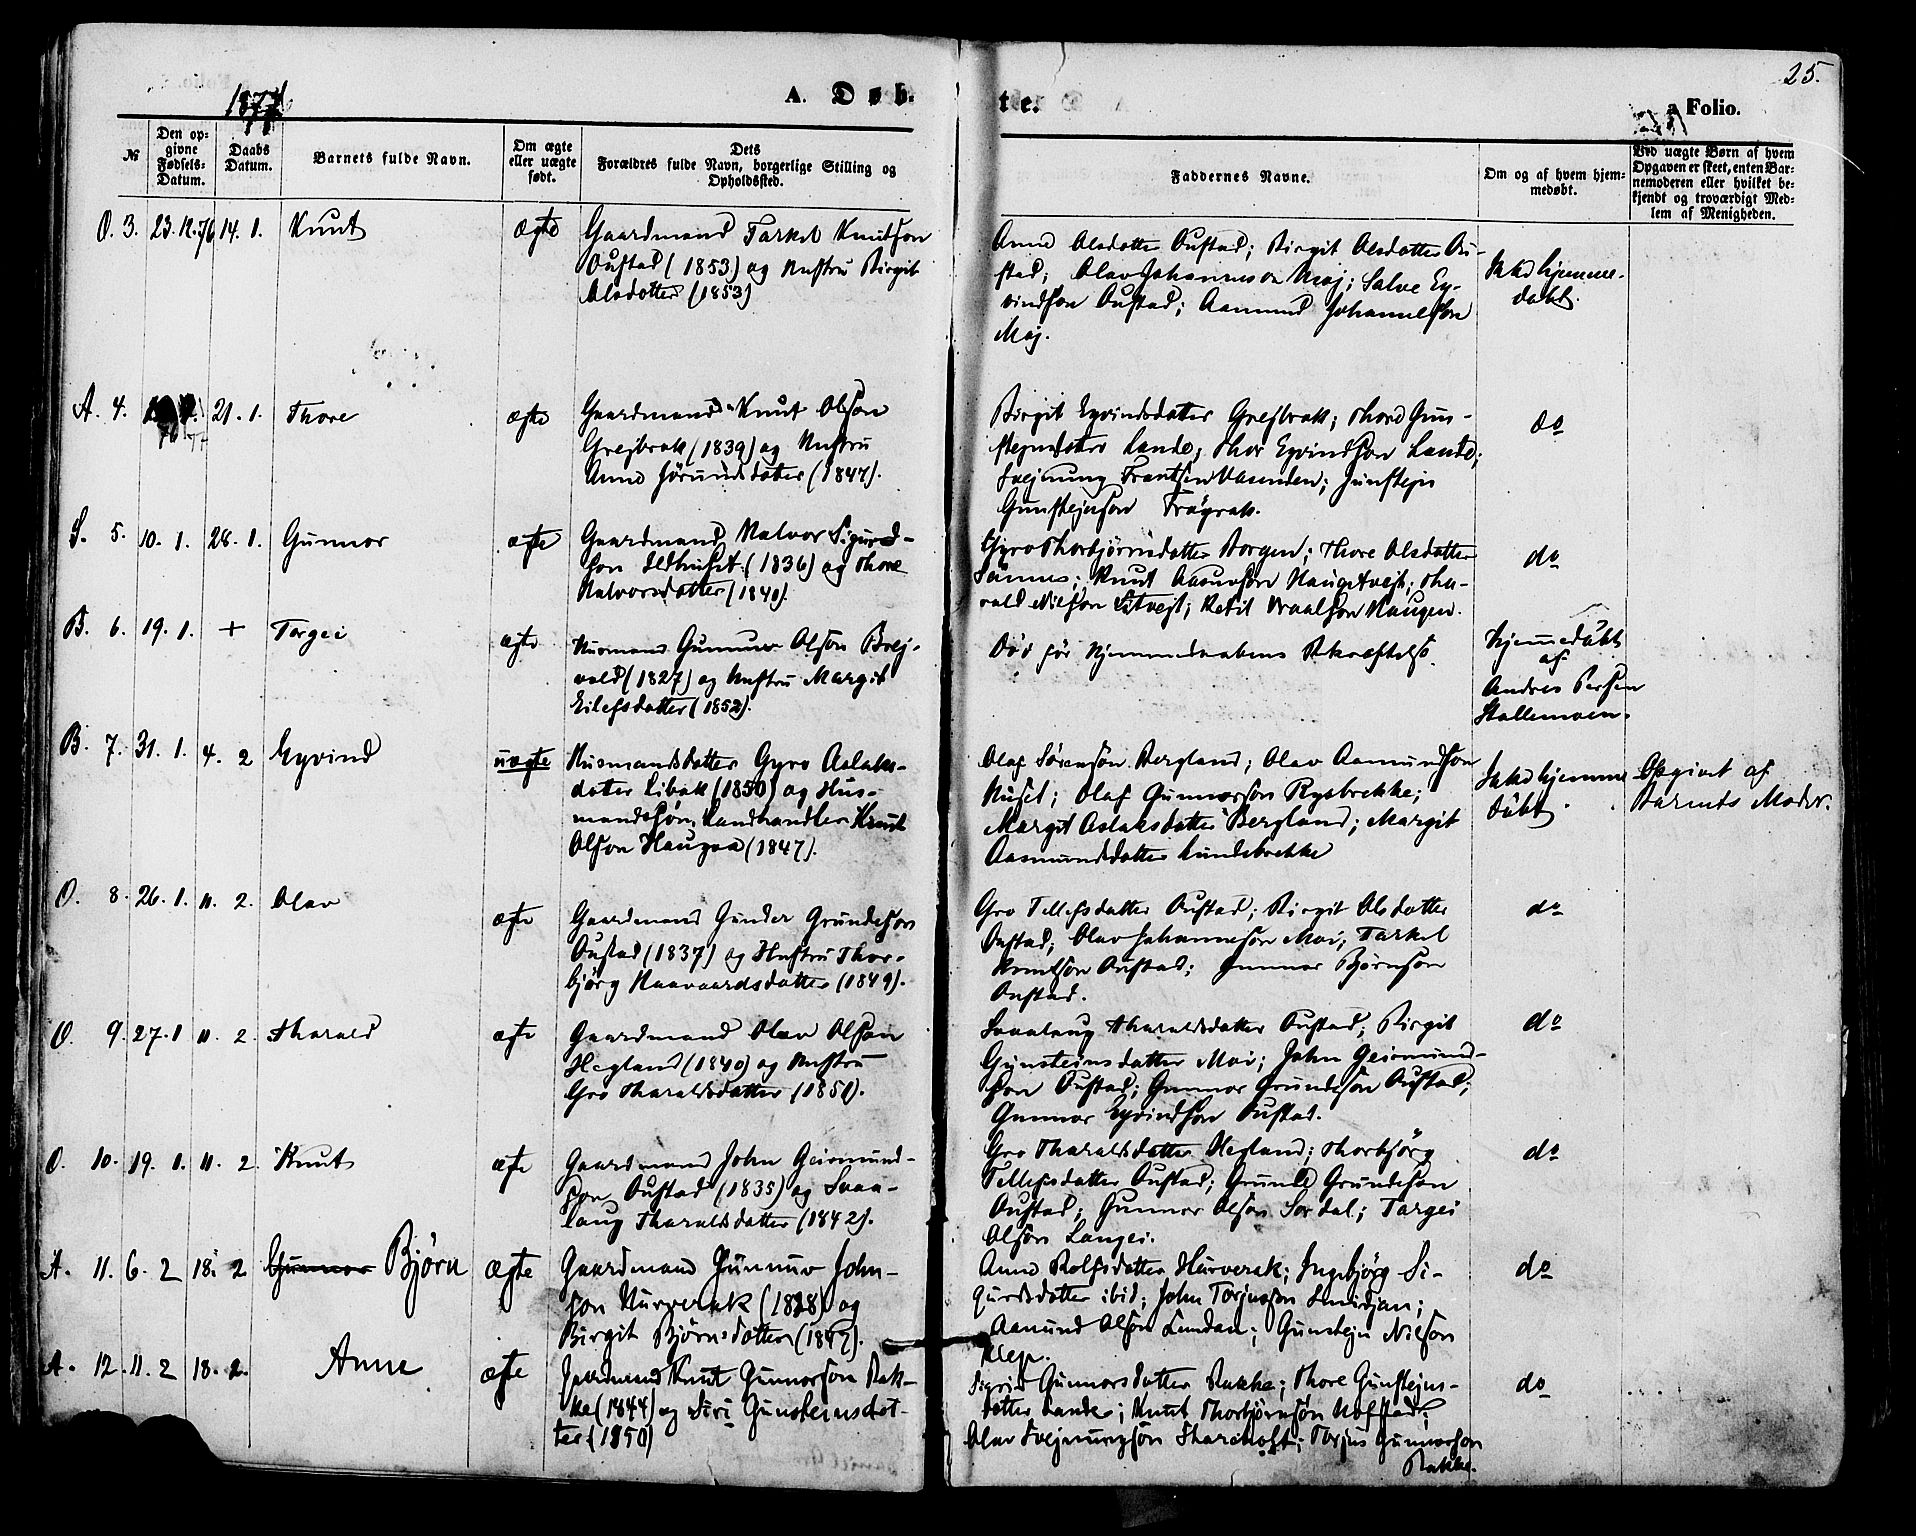 25.
1877
A. Døb-
te.
a Folio.
№
Den op-
givne
Fødsels-
Datum.
Daabs
Datum.
Barnets fulde Navn.
Om ægte
eller uægte
født.
Dets
Forældres fulde Navn, borgerlige Stilling og
Opholdssted.
Faddernes Navne.
Om og af hvem hjem-
medøbt.
Ved uægte Børn af hvem
Opgaven er skeet, enten Bar-
nemoderen eller hvilket be-
kjendt og troværdigt Med-
lem af Menigheden.
O. 3. 23.12.76 14. 1. Knut ægte
Gaardmand Tarkel Knutson
Oustad (1853) og Hustru Birgit
Olsdatter (1853)
Anne Olsdatter Oustad; Birgit Olsdatter Ou-
stad; Olav Johanneson Moj; Salve Ey-
vindson Oustad; Aamund Johanneson
Moj.
Ikke hjemme-
døbt.
A. 4. 21. 1. Thore ægte
Gaardmand Knut Olson
Grejbrok (1839) og Hustru
Anne Jørundsdatter (1847).
Birgit Eyvindsdatter Grejbrok; Thore Gun-
stejnsdatter Lande; Thor Eyvindson Lande;
Svejnung Frantsen Vasenden; Gunstejn
Gunstejnson
do
S. 5. 10. 1. 28. 1. Gunnor ægte
Gaardmand Halvor Sigurd-
son Ildhuset (1836) og Thore
Halvorsdatter (1840).
Gyro Thorbjørnsdatter Borgen; Thore Olsdatter
Sannes; Knut Aasuvson Haugetvejt; Tha-
rald Nilson Litvejt; Ketil Vraalson Haugen.
do
B. 6. 19. 1. + Torgei ægte
Husmand Gunnuv Olson Brej-
vold (1827) og Hustru Margit
Eilefsdatter (1852).
Død før Hjemmedaabens Bekræftelse.
Hjemmedøbt
af
Andres Persen
Stallemoen.
B. 7. 31. 1. 4. 2 Eyvind uægte
Husmandsdatter Gyro Aslaks-
dater Libak (1850) og Hus-
mandssøn, Landhandler Knut
Olson Haugaa (1847).
Olaf Sørenson Bergland; Olav Aamundson
Huset; Olaf Gunnorson Rysbrekke;
Margit Aslaksdatter Bergland; Margit
Aasmundsdatter Lundebrekke
Ikke hjemme
døbt.
Opgivet af
Barnets Moder.
O. 8. 26. 1. 11. 2. Olav ægte
Gaardmand Gunder Grundeson
Oustad (1837) og Hustru Thor-
bjørg Haavaardsdatter (1849).
Gro Tellefsdatter Oustad; Birgit Olsdatter
Oustad; Olav Johanneson Moi; Tarkel
Knutson Oustad; Gunnor Bjørnson
Oustad.
do
O. 9. 27. 1 11. 2. Tharald ægte
Gaardmand Olav Olson
Hegland (1840) og Hustru
Gro Tharaldsdatter (1851).
Svaalaug Tharaldsdatter Oustad; Birgit
Gunsteinsdatter Moi; John Geirmund-
son Oustad; Gunnor Grundeson Oustad;
Gunnor Eyvindson Oustad.
do
O. 10. 19. 1. 11. 2. Knut ægte
Gaardmand John Geirmund-
son Oustad (1835) og Svaa-
laug Tharaldsdatter (1842).
Gro Tharaldsdatter Hegland; Thorbjørg
Tellefsdatter Oustad; Grunde Grundeson
Oustad; Gunnor Olson Sordal; Targei
Olson Langei.
do
A. 11. 6. 2 18. 2 Gunnor Bjørn ægte
Gaardmand Gunnuv John-
son Hurverak (1828) og
Birgit Bjørnsdatter (1847).
Anne Rolfsdatter Hurverak; Ingebjørg Si-
gurdsdatter ibid; John Torjusson Smidjan;
Aanund Olson Lundan; Gunstejn Nilson
Klep.
do
A. 12. 11. 2 18. 2. Anne ægte
Gaardmand Knut Gunnorson Rak-
ke (1844) og Siri Gunsteinsdat-
ter (1850)
Sigrid Gunnorsdatter Rakke; Thore Gunstejns-
datter Lande; Knut Thorbjørnson Hofstad;
Olav Svejnungson; Torjus Gunnorson
Rakke.
do